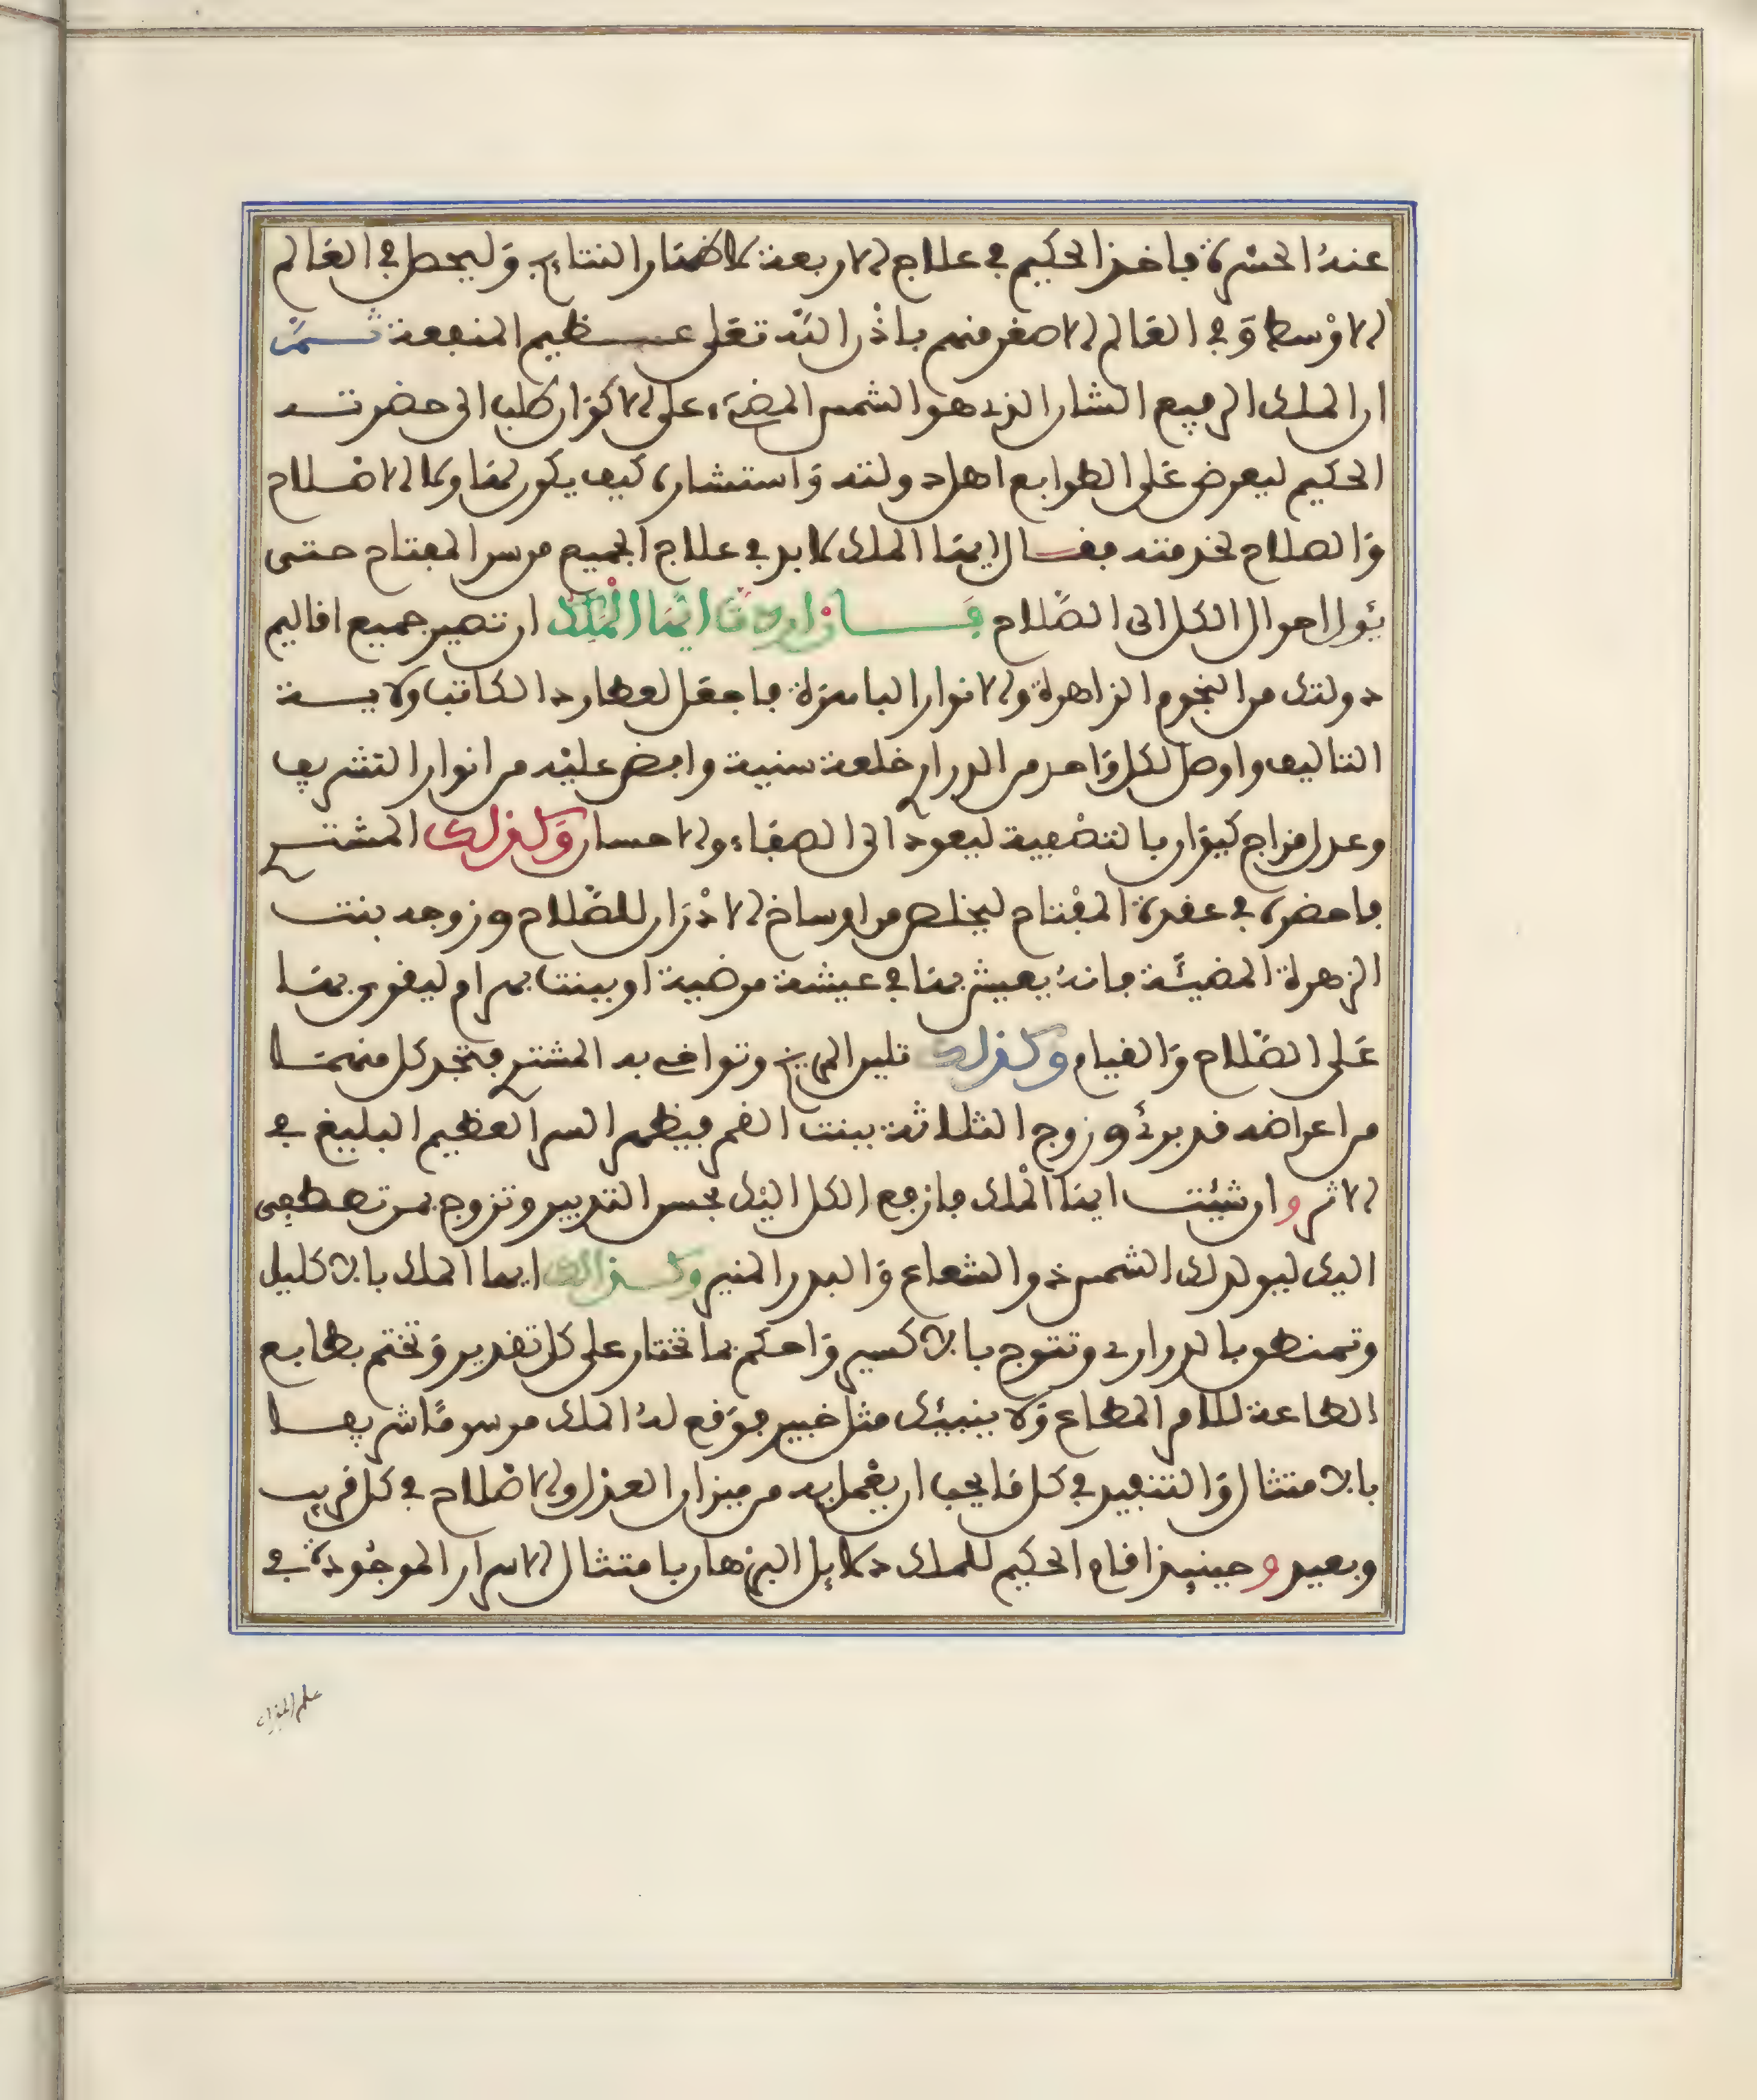 عندهُ الحسْرة فاخذ الحكيم في علاج الاربعة لاظهار النتايج وَليحصل في العَالم
الاوْسط وَفي العَالم الاصغر منهم باذْن اللّه تعَلى عـظيم المنفعة ثــمَّ
ان الملك الرفيع الشان الذي هو الشمس المضيَء على الاكوَان طلب الى حضرتــه
الحكيم ليعرض عَلى الطوابع اهل دولته وَاستشاره كيف يكون لهَا وبها الاصْلاح
وَالصلاح لخدمته فقـــال ايهَا الملك لابد في علاج الجميع من سر المفتاح حتـى
يَؤول احوال الكل الى الصَّلاح فَــــاذا اردت ايُّهَا الْمَلك ان تصير جميع اقاليم
دولتك من النجوم الزاهرة والانوار الباهرَة فاجعَل لعطارد الكاتب ولايــة
التاليف واوصل لكل وَاحد من الدراري خلعة سنية وافض عليْه من انوار التشريف
وعدل مزاج كيوَان بالتصْفية ليعود الى الصفَاء والاحسان وَكذلك المشتــري
فاحضره في عقدة المفْتاح ليخلص من اوساخ الادْرَان للصَّلاح وزوجه بنتــ
الزهرة المضيئَة فانهُ يعيش بهَا في عيشة مرضية او ببنت بهرام ليقوى بهَــا
عَلى الصَّلاح وَالقيام وكذلك تلين المريخ وتواخي به المشتري فتجد كل منهمَــا
من اعراضه قد برئَ وزوج الثلاثة ببنت القمر فيظهر السر العظيم البليغ في
الاثر وان شئتـــ ايهَا الْملك فارجع الكل اليْك بحسن التدبير وتزوج بمن تصطفى
اليك ليولد لك الشمس ذو الشعاع وَالبدر المنير وكــذالك ايها الملك بالاكليل
وتمنطق بالدراري وتتوج بالاكسير وَاحكم بما تختار على كل تقدير وَتختم بطابع
الطاعة للامر المطاع وَلا ينبيئك مثل خبير فوَقع لهُ الملك مرسومًا شريفــا
بالامتثال وَالتنفيذ في كل مَا يجب ان يعْمل به من ميزان العدل والاصْلاح في كل قريب
وبعيد وحينيذ اقام الحكيم للملك دلايل البرْهان بامتثال الاسرار الموجُودة في
علم الميزان